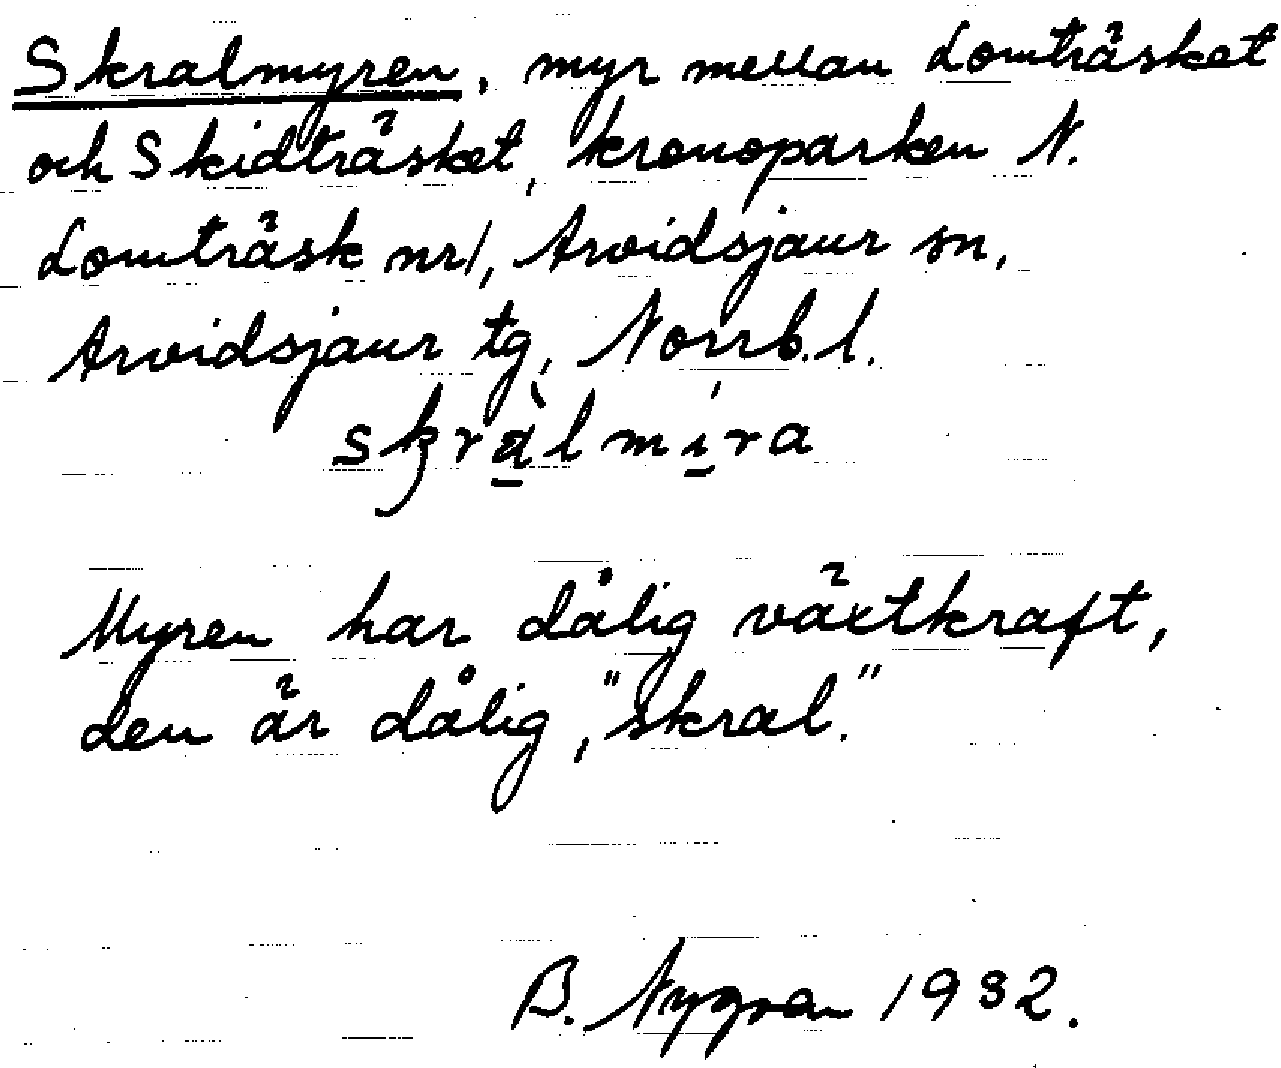 Skralmyren, myr mellan Lomträsket
och Skidträsket, kronoparken N.
Lomträsk nr 1, Arvidsjaur sn,
Arvidsjaur tg, Norrb. l.
skràlmíra
Myren har dålig växtkraft,
den är dålig, "skral."
B. Nygren 1932.